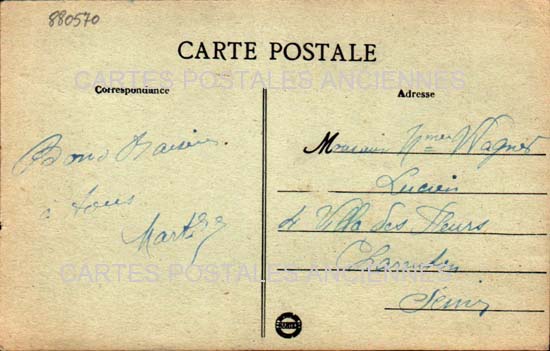 880570
CARTE POSTALE
CARTES POSTALES ANCIENNES
Correspondance
Adresse
Bons Baisers
à tous
Marthe
Monsieur Mme Wagner
Lucien
4 Villa des Fleurs
Charenton
Seine
CARTES POSTALES ANCIENNES